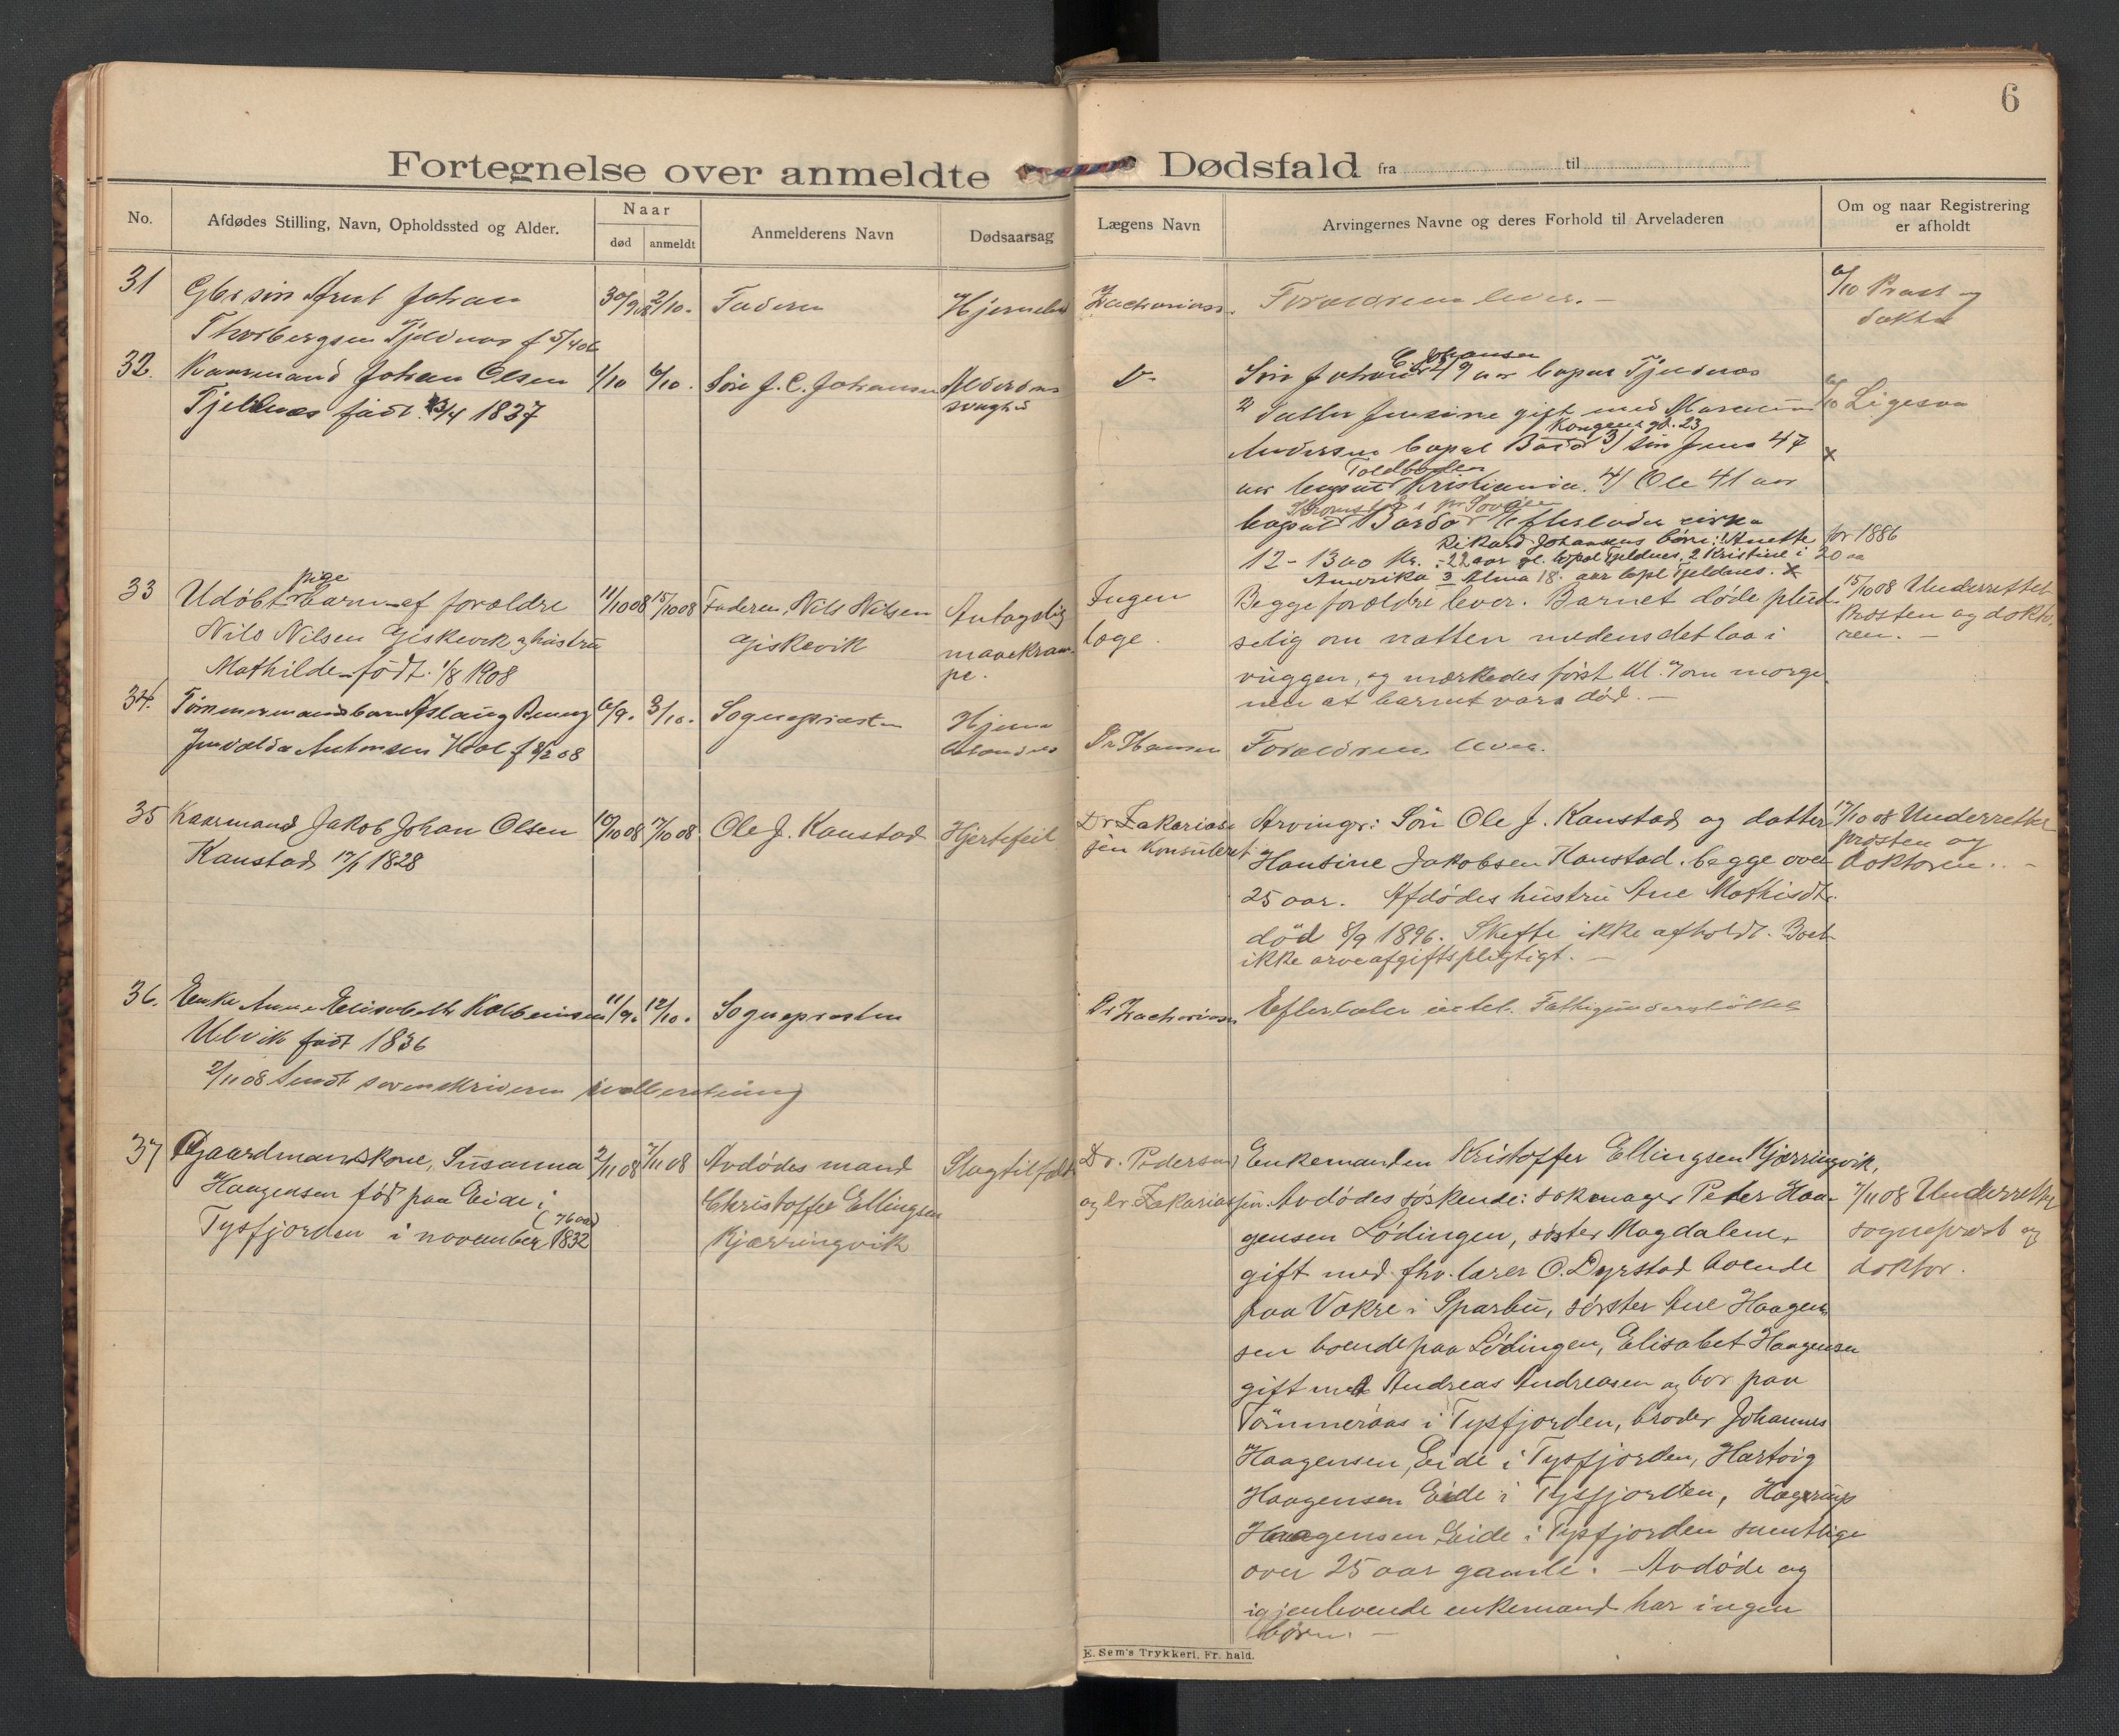 6
Fortegnelse over anmeldte Dødsfald fra til
No.
Afdødes Stilling, Navn, Opholdssted og Alder.
Naar
død
anmeldt
Anmelderens Navn
Dødsaarsag
Lægens Navn
Arvingernes Navne og deres Forhold til Arveladeren
Om og naar Registrering
er afholdt
31
Johan
Thorbergsen Tjeldnes f 5/4 06
30/9 08
2/10.
Faderen
Zachariass.
Forældrene lever. —
6/10 Præst og
doktor
32.
Kaarmand Johan Olsen
Tjeldnes født 23/4 1827
1/10
6/10.
Søn J. C. Johansen
Alderdoms
svaghed
Do
Søn Johan C. Johansen 49 aar bopæl Tjeldnes
2 datter Jensine gift med
Andersen bopæl Bodø Kongens gd. 23 3) søn Jens 47
aar bopæl Toldboden Kristiania. 4) Ole 41 aar
bopæl Bardo Efterlader cirka
12-1300 Kr. Rikard Johansens børn: 1 Anette
22 aar gl. bopæl Tjeldnes, 2 Kristine i 20 aa
Amerika 3 Alma 18 aar bopl Tjeldnes. x
6/10 Ligesaa
x
før 1886
33
Udøbt pige barn af forældre
Nils Nilsen Giskevik og hustru
Mathilde født 1/8 1908
11/10 08
15/10 08
Faderen, Nils Nilsen
Giskevik
Antagelig
mavekram-
pe.
Ingen
læge.
Begge forældre lever. Barnet døde plud-
selig om natten medens det laa i
vuggen, og mærkedes først kl. 7 om morge-
nen at barnet var død. —
15/10 08 Underrettet
Præsten og dokto-
ren. —
34.
Tømmermandsbarn Aslaug
Antonsen Hol f 8/2 08
6/9.
3/10.
Sognepræsten
Hjerne
Dr Hansen
Forældrene lever.
35
Kaarmand Jakob Johan Olsen
Kanstad 17/1 1828
10/10 08
17/10 08
Ole J. Kanstad
Hjertefeil
Dr Zakarias-
sen konsuleret
Arvinger: Søn Ole J. Kanstad og datter
Hansine Jakobsen Kanstad. begge over
25 aar. Afdødes hustru Ane Mathisdtr.
død 8/9 1896. Skifte ikke afholdt. Boet
ikke arveafgiftspligtigt. —
17/10 08 Underrettet
præsten og
doktoren. —
36.
Enke Anne Elisabeth Kolbeinsen
Ulvik født 1836
2/11 08 Sendt sorenskriveren
11/9.
12/10.
Sognepræsten
Dr Zachariassen
Efterlader intet. Fattigunderstøttet
37
Gaardmandskone, Susanna
Haagensen fød paa Eide i
Tysfjorden i november 1832
(76 aar)
2/11 08
7/11 08
Avdødes mand
Christoffer Ellingsen
Kjærringvik
Slagtilfælde
Dr. Pedersen
og Dr Zakariassen.
Enkemanden Kristoffer Ellingsen Kjærringvik,
Avdødes søskende: skomager Peter Haa-
gensen Lødingen, søster Magdalene,
gift med fhv. lærer O. Dyrstad boende
paa Vakre i Sparbu, søster Ane Haagen-
sen boende paa Lødingen, Elisabet Haagensen
gift med Andreas Andreasen og bor paa
Tømmeraas i Tysfjorden, broder Johannes
Haagensen, Eide i Tysfjorden, Hartvig
Haagensen Eide i Tysfjorden, Hagerup
Haagensen Eide i Tysfjorden samtlige
over 25 aar gamle. — Avdøde og
igjenlevende enkemand har ingen
børn. —
7/11 08 Underrettet
sogneprest og
doktor.
E. Sem's Trykkeri, Fr. hald.